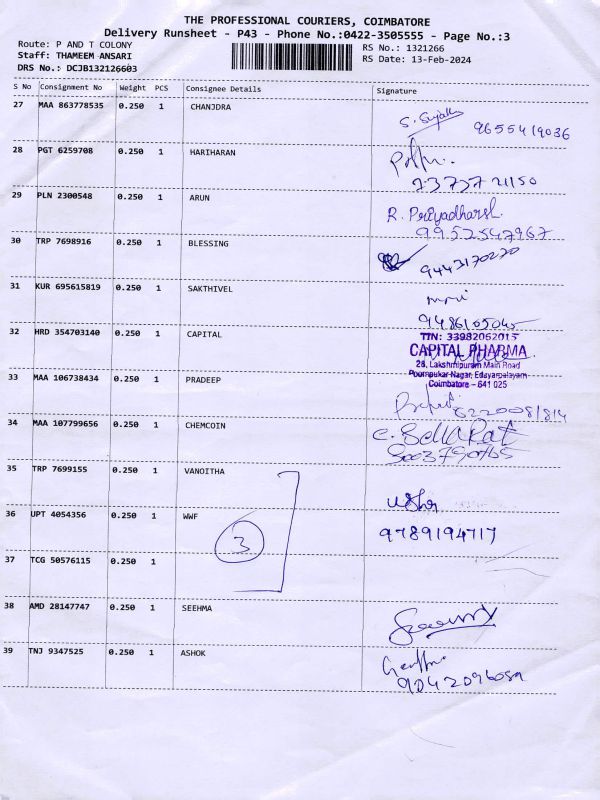 THE PROFESSIONAL COURIERS, COIMBATORE
Delivery Runsheet - P43 - Phone No.:0422-3505555 - Page No.:3
Route: P AND T COLONY
RS No.: 1321266
Staff: THAMEEM ANSARI
RS Date: 13-Feb-2024
DRS No.: DCJB132126603
S No Consignment No Weight PCS Consignee Details Signature
27 MAA 863778535 0.250 1 CHANJDRA
S. 9655419036
28 PGT 6259708 0.250 1 HARIHARAN
29 PLN 2300548 0.250 1 ARUN
R. Priyadharsh
9952547967
30 TRP 7698916 0.250 1 BLESSING
9443170220
31 KUR 695615819 0.250 1 SAKTHIVEL
32 HRD 354703140 0.250 1 CAPITAL
TIN: 33982062015
CAPITAL PHARMA
28, Lakshmipuram Main Road
Poompukar Nagar, Edayarpalayam
Coimbatore - 641 025
33 MAA 106738434 0.250 1 PRADEEP
34 MAA 107799656 0.250 1 CHEMCOIN
35 TRP 7699155 0.250 1 VANOITHA
Usha
36 UPT 4054356 0.250 1 WWF
3
9789194717
37 TCG 50576115 0.250 1
38 AMD 28147747 0.250 1 SEEHMA
39 TNJ 9347525 0.250 1 ASHOK